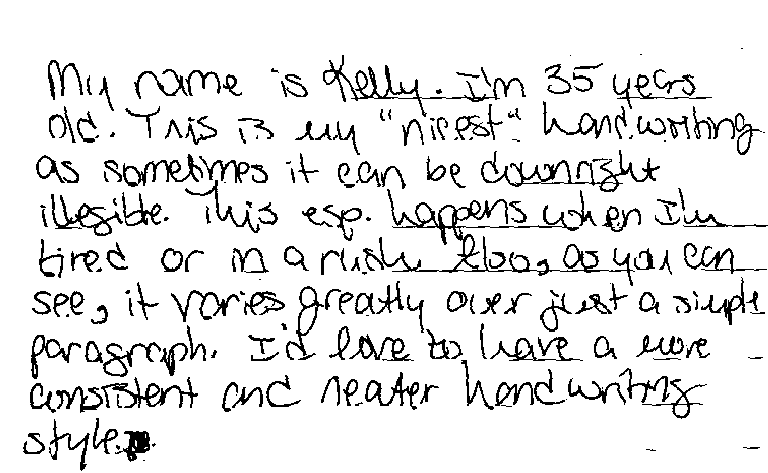 My name is Kelly. I'm 35 years
old. This is my "nicest" handwriting
as sometimes it can be downright
illegible. This esp. happens when I'm
tired or in a rush. Also, as you can
see, it varies greatly over just a simple
paragraph. I'd love to have a more
consistent and neater handwriting
style.